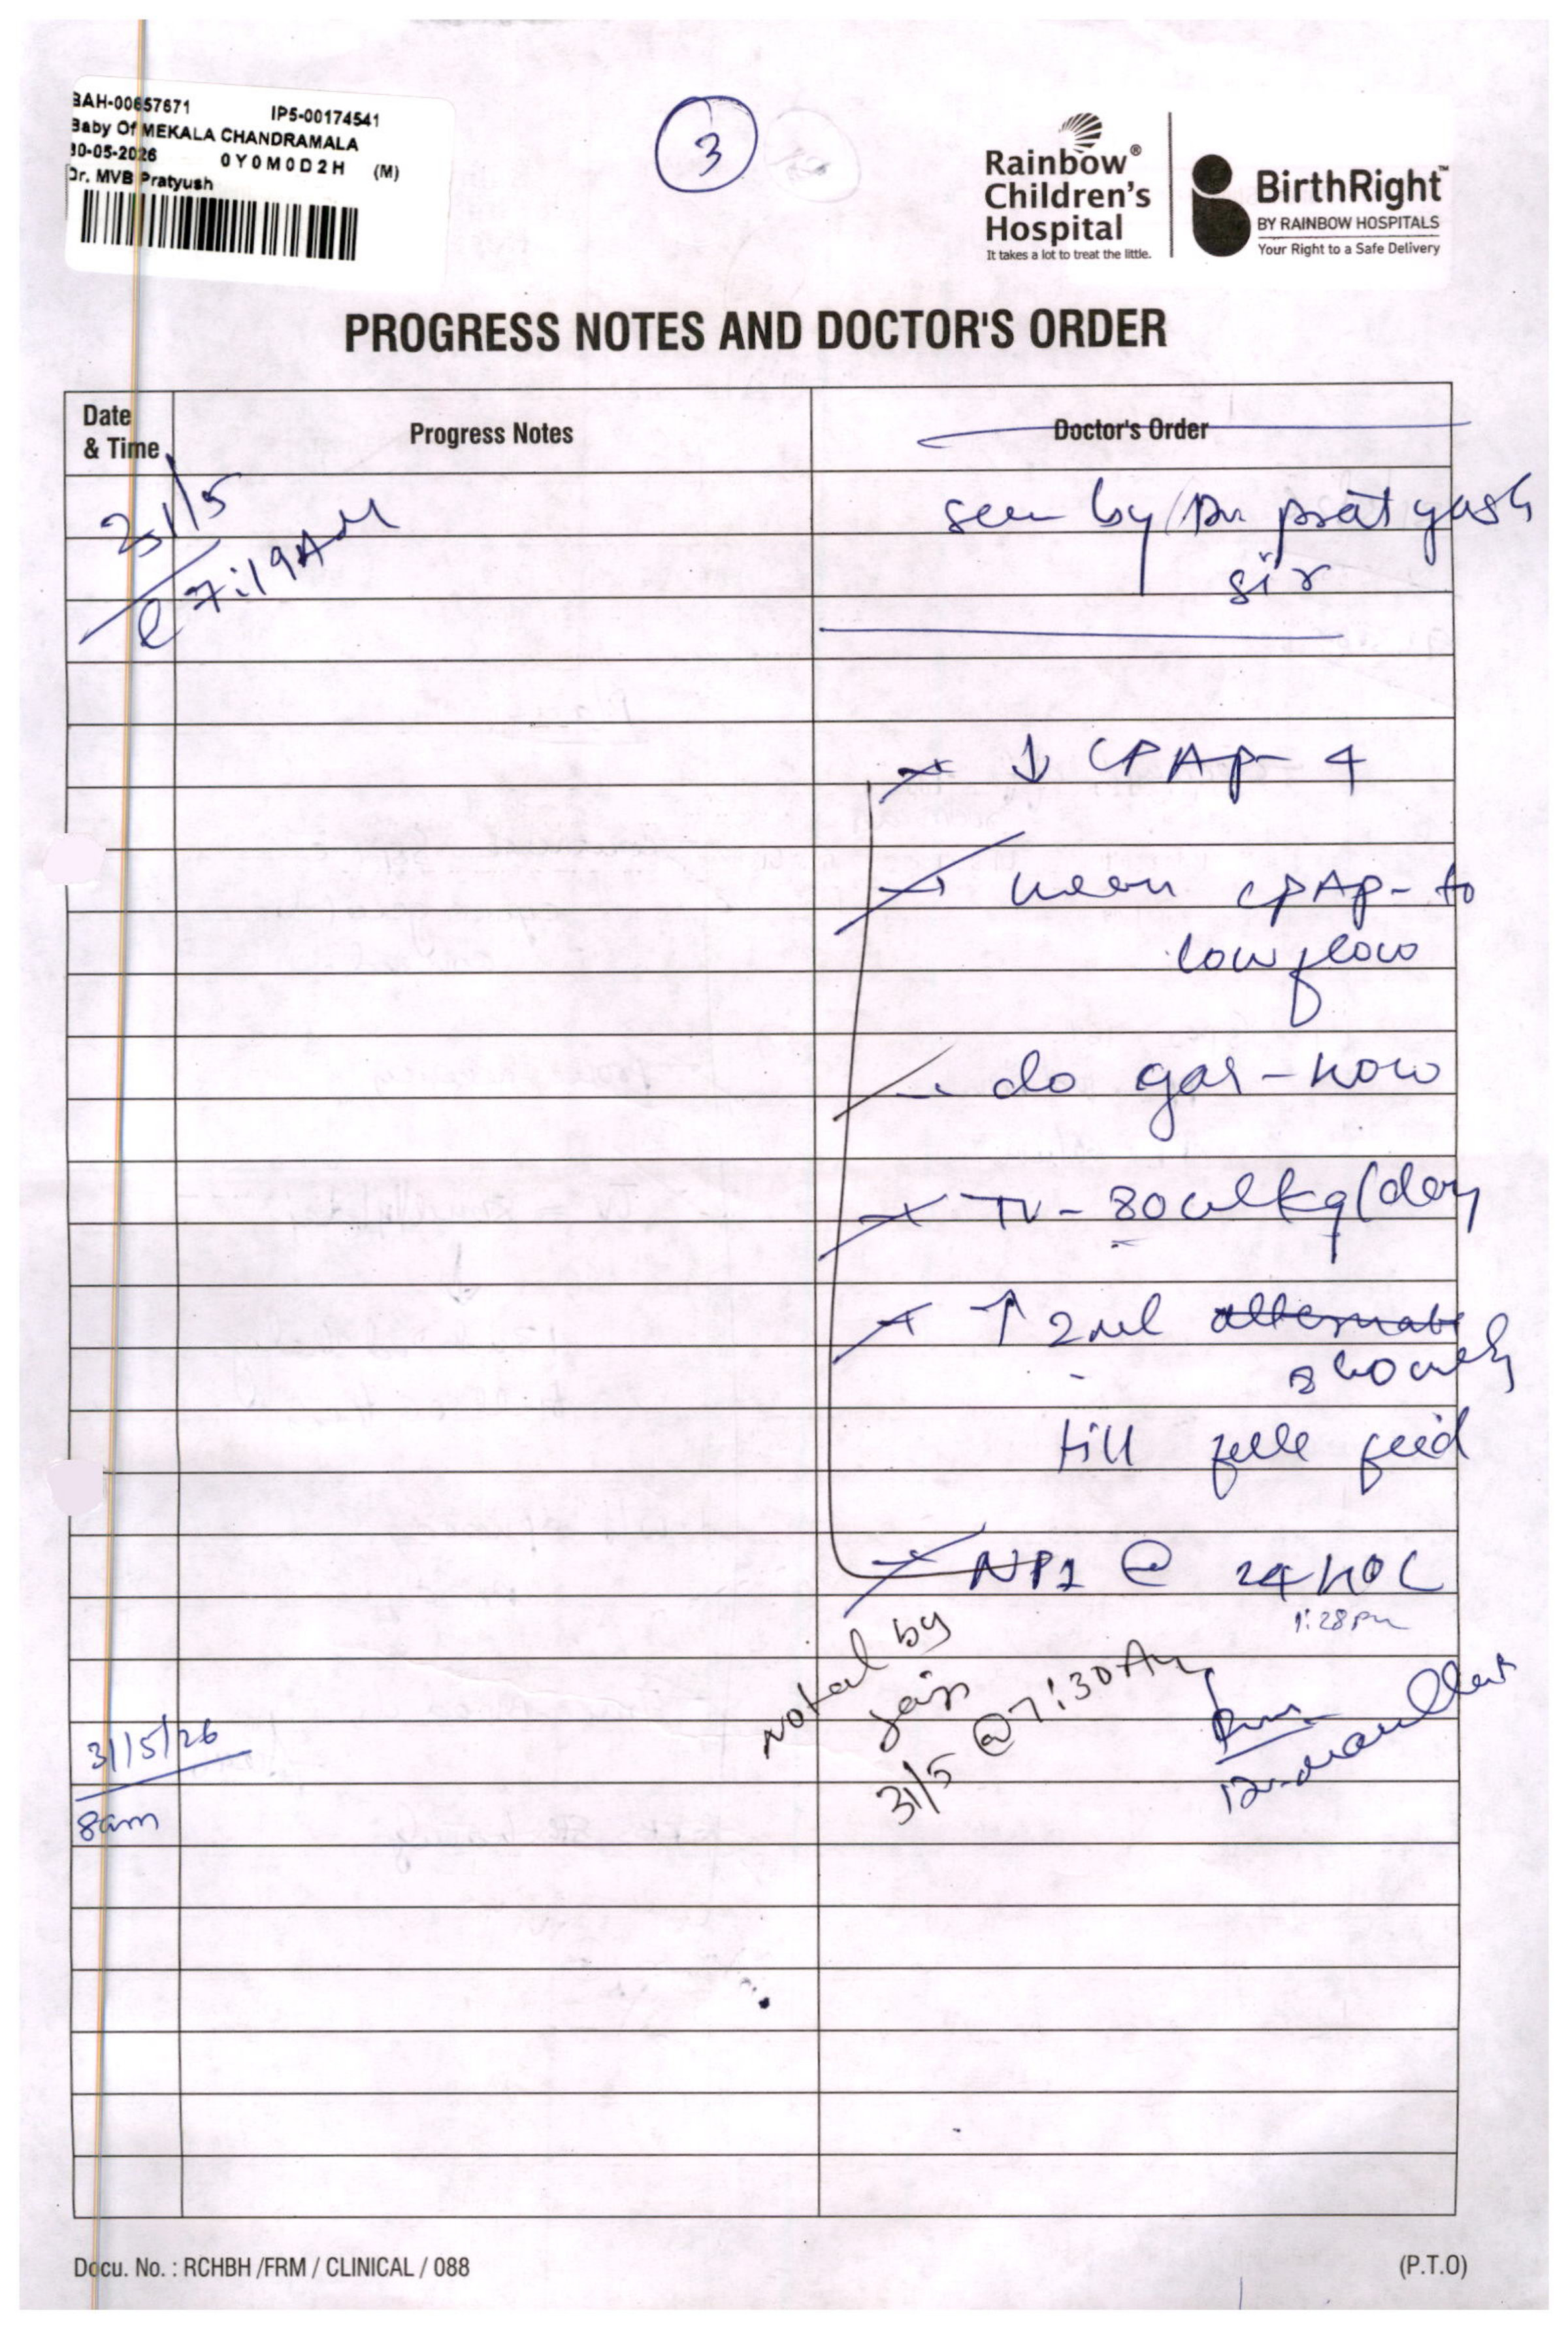 BAH-00657671 IP5-00174541
Baby Of MEKALA CHANDRAMALA
30-05-2026 0Y0M0D2H (M)
Dr. MVB Pratyush
3
Rainbow®
Children's
Hospital
It takes a lot to treat the little.
BirthRight™
BY RAINBOW HOSPITALS
Your Right to a Safe Delivery
PROGRESS NOTES AND DOCTOR'S ORDER
Date
& Time
Progress Notes
Doctor's Order
31/5
@ 7:19AM
seen by Dr. pratyush
sir
↓ CPAP- 4
wean CPAP- to
low flow
do gas - now
TV - 80ml/kg/day
↑ 2ml alternate
hourly
till full feed
@ 24 HOL
1:28pm
Noted by
31/5 @ 7:30 Am
31/5/26
8am
Docu. No. : RCHBH /FRM / CLINICAL / 088
(P.T.O)